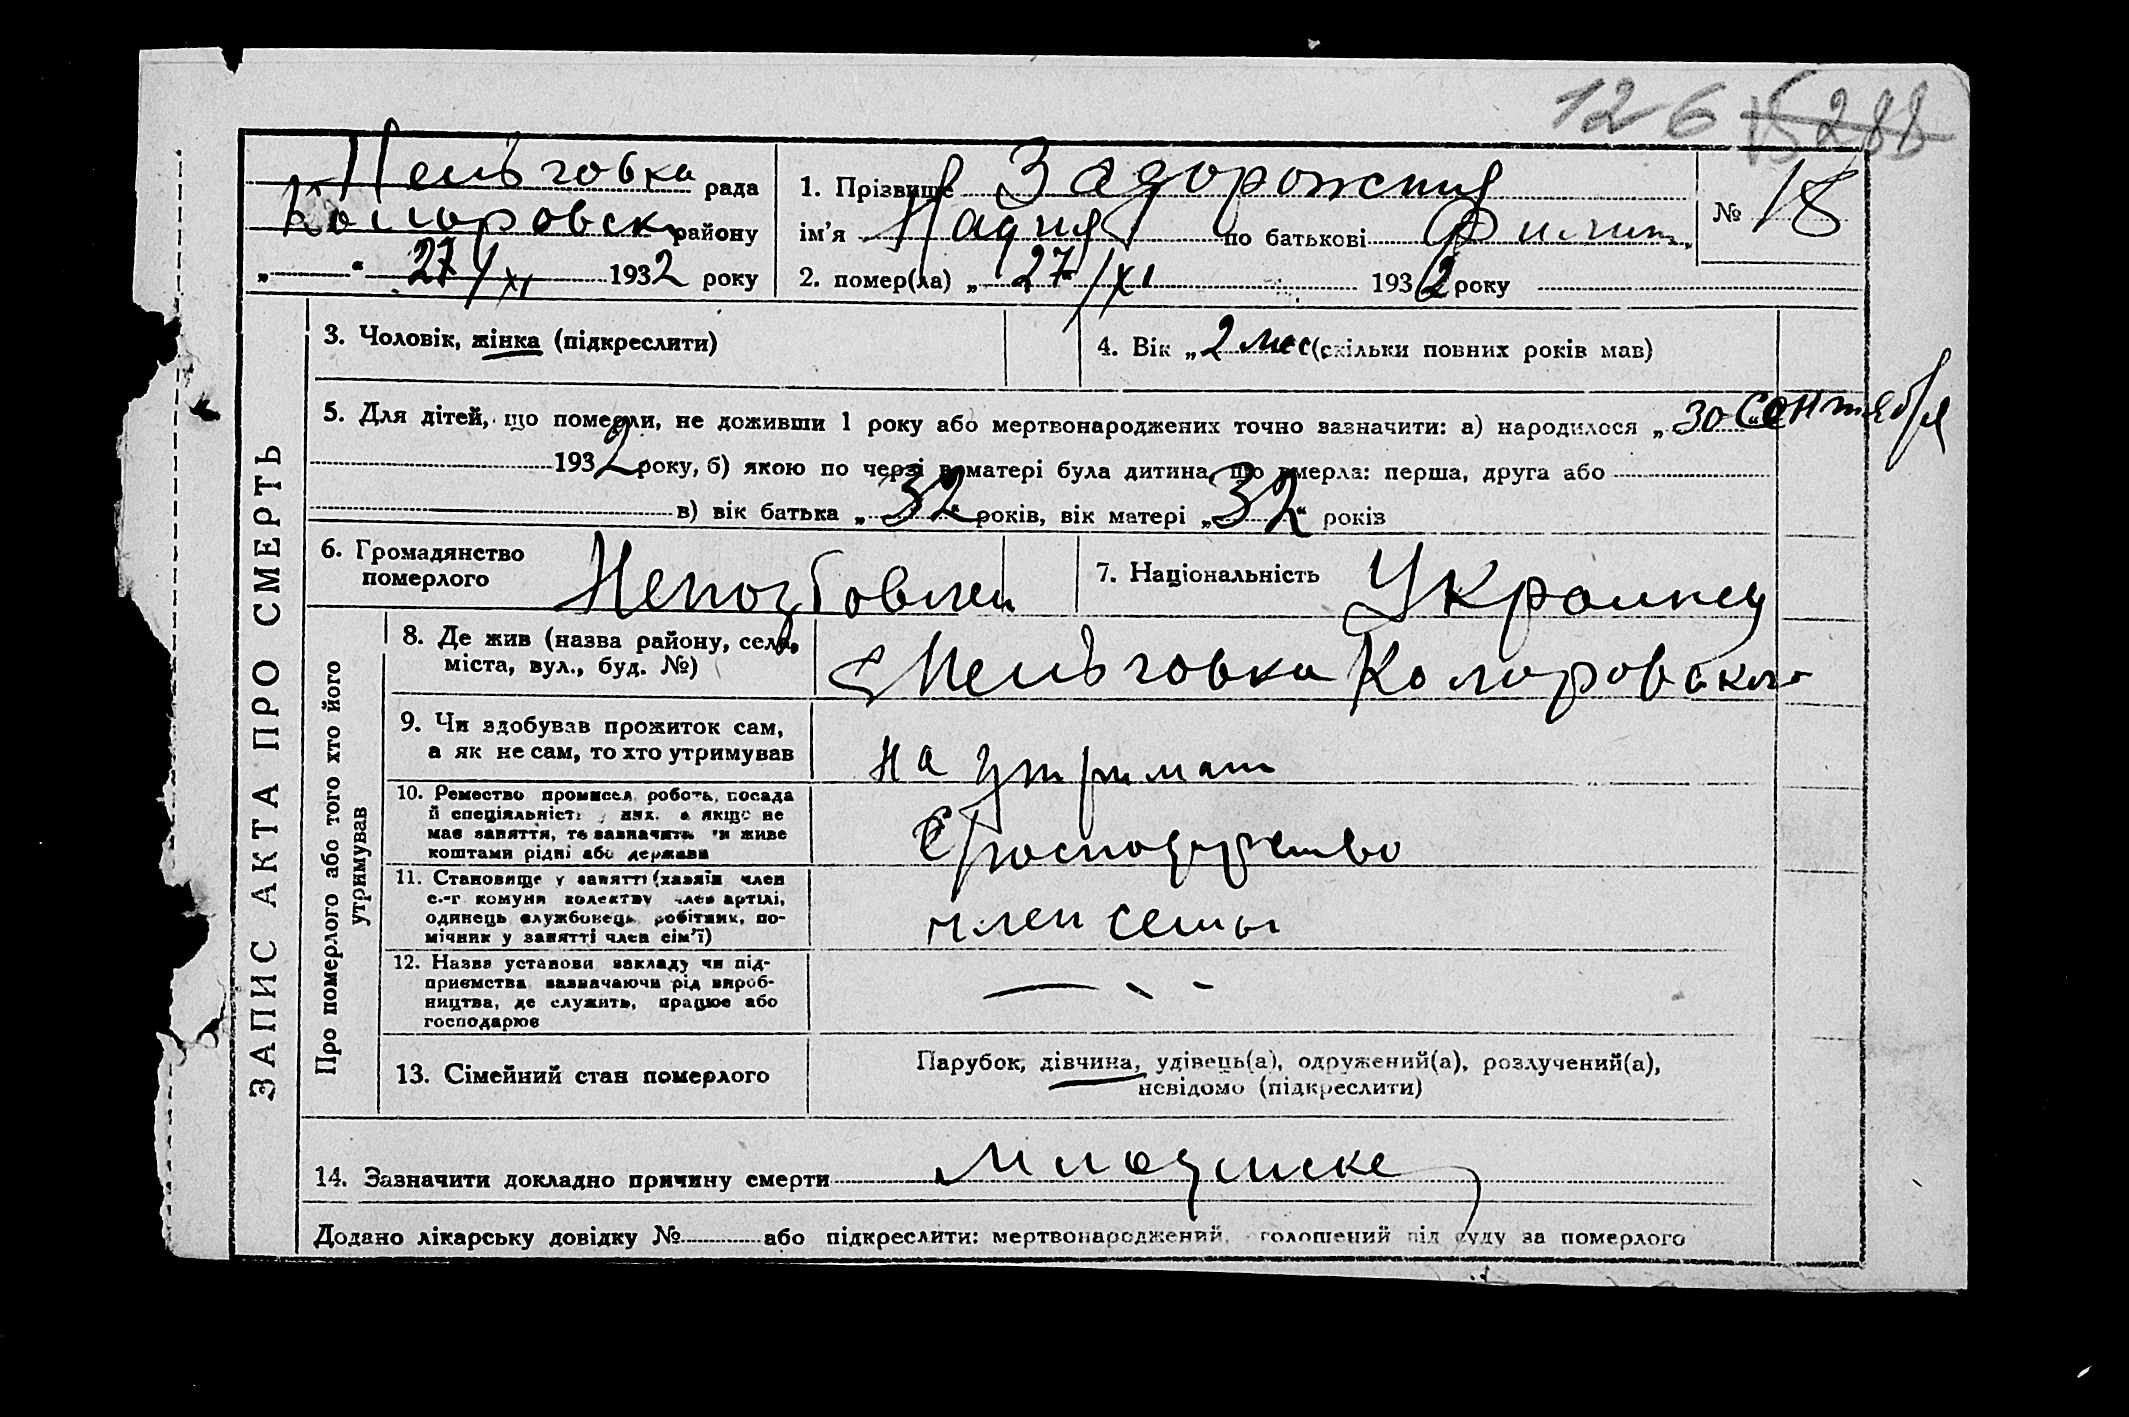 126 15288
Пельговка рада
Коларовск району
„ “ 27/XI 1932 року
1. Прізвище Задорожния
ім’я Надия по батькові Филип.
№ 18
2. помер(ла) „ 27 “ /XI 1932 року
3. Чоловік, жінка (підкреслити)
4. Вік „ 2 мес (скільки повних років мав)
5. Для дітей, що померли, не доживши 1 року або мертвонароджених точно зазначити: а) народилося „ 30 “ Сентября
1932 року, б) якою по черзі у матері була дитина, що вмерла: перша, друга або
в) вік батька „ 32 “ років, вік матері „ 32 “ років
6. Громадянство
померлого
Непозбовлен
7. Національність Украинец
8. Де жив (назва району, села,
міста, вул., буд. №)
Коларовского
9. Чи здобував прожиток сам,
а як не сам, то хто утримував
на утриман
10. Ремество промисел, робота, посада
й спеціяльність у них. а якщо не
має заняття, то зазначити чи живе
коштами рідні або держави
11. Становище у занятті (хазяїн член
с.-г комуни колективу член артілі,
одинець службовець робітник, по-
мічник у занятті член сім’ї)
член семьи
12. Назва установи закладу чи під-
приємства зазначаючи рід вироб-
ництва, де служить, працює або
господарює
13. Сімейний стан померлого
Парубок, дівчина, удівець(а), одружений(а), розлучений(а),
невідомо (підкреслити)
14. Зазначити докладно причину смерти
Додано лікарську довідку № або підкреслити: мертвонароджений, голошений під суду за померлого
ЗАПИС АКТА ПРО СМЕРТЬ
Про померлого або того хто його
утримував